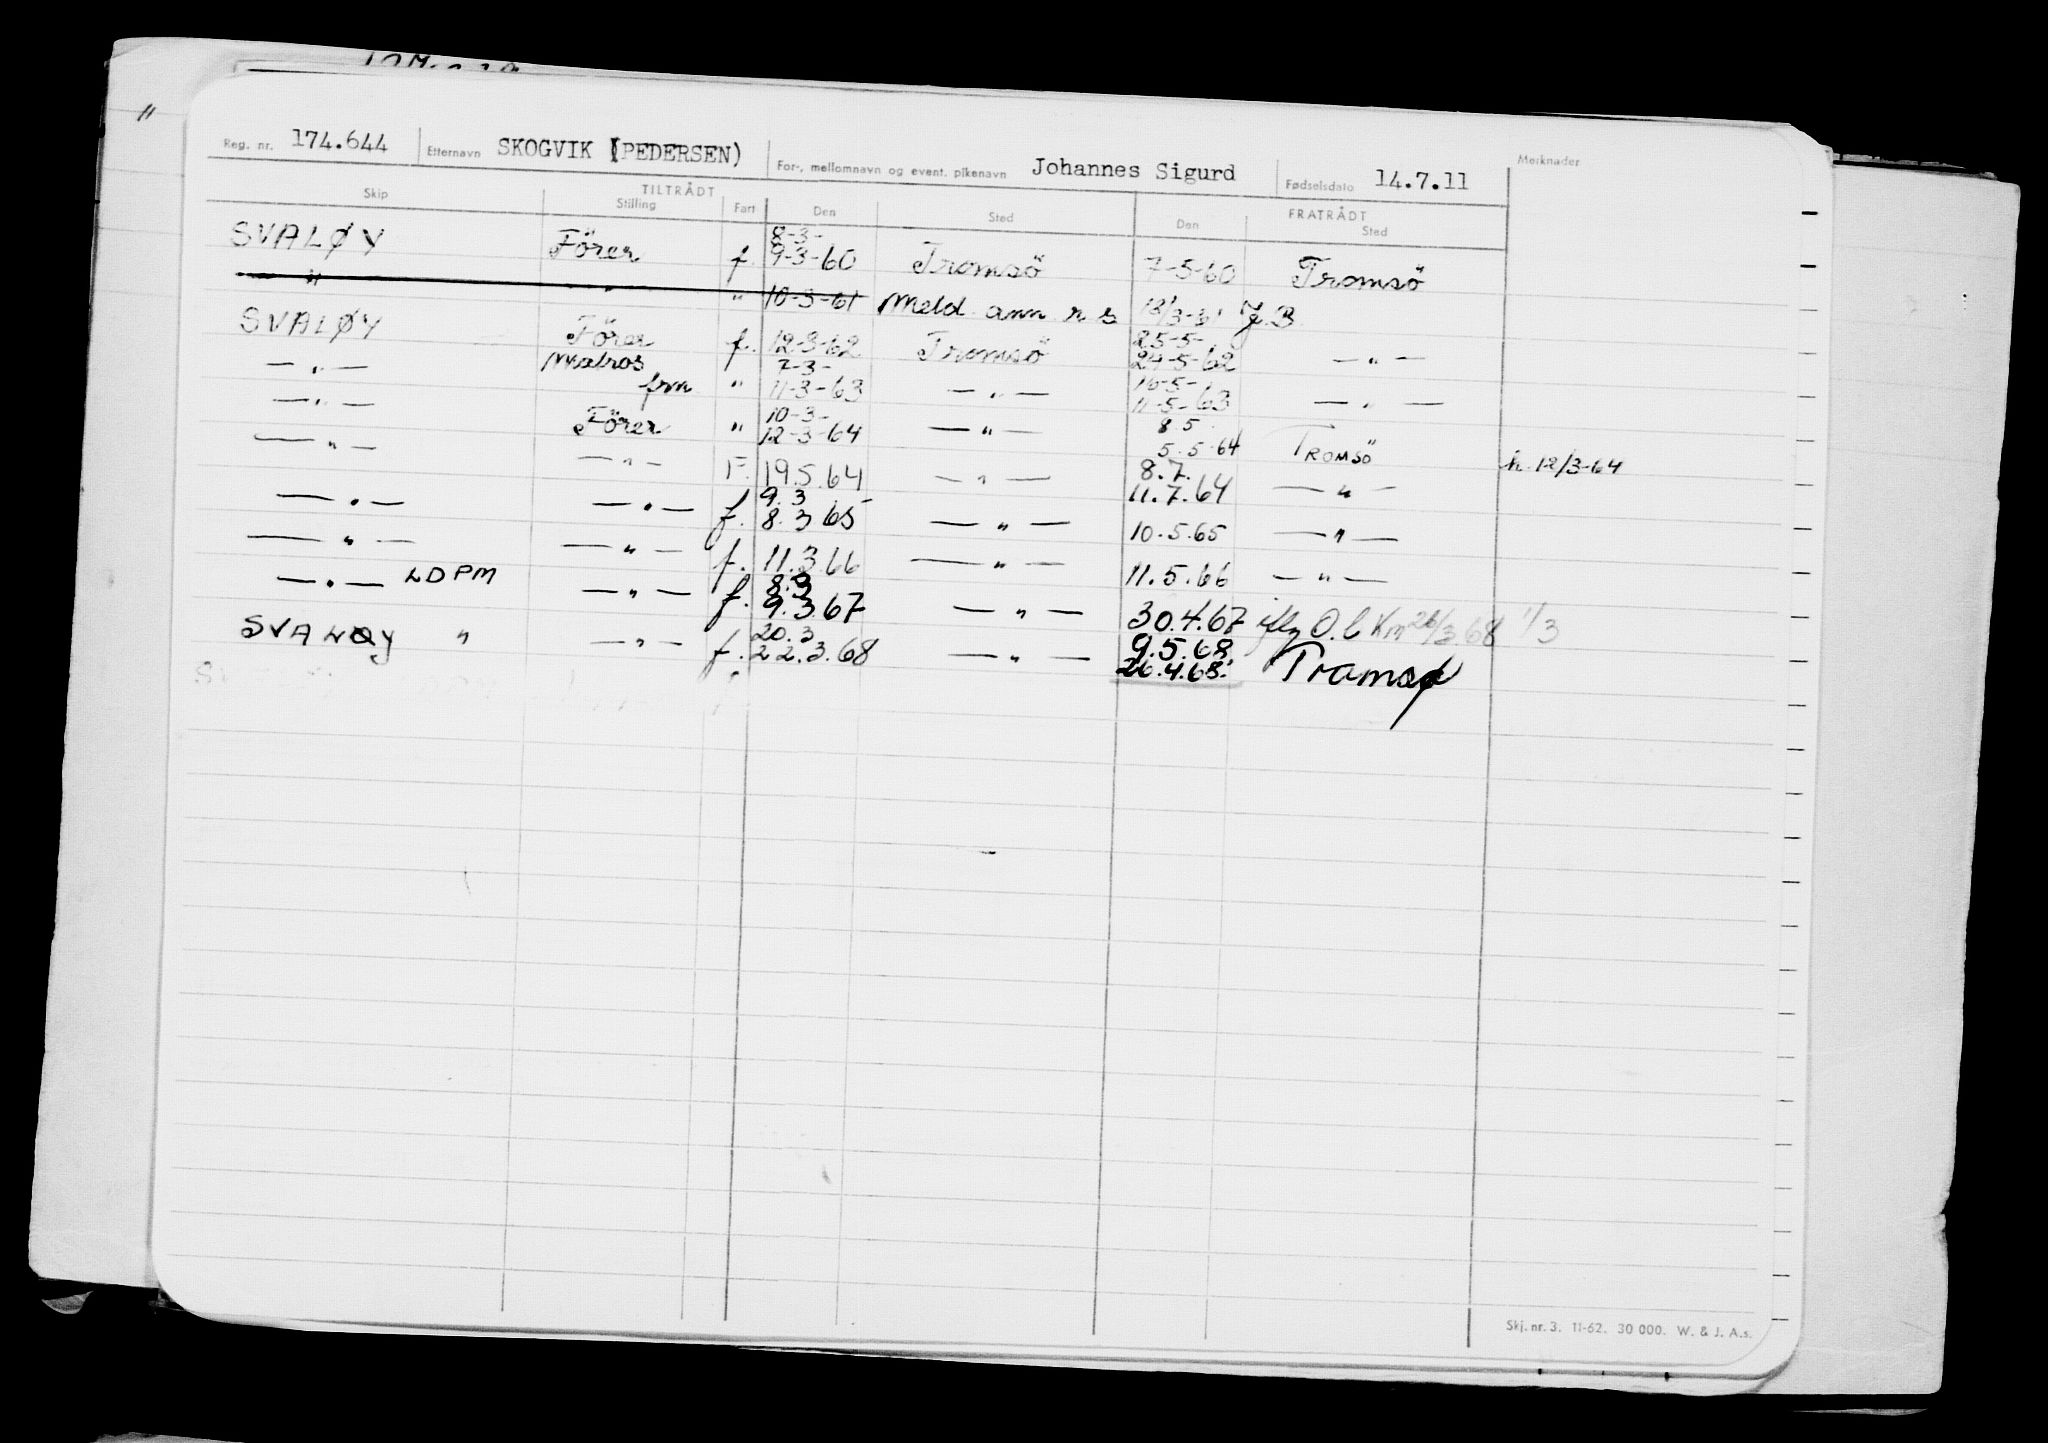 Reg. nr. 174.644 Etternavn SKOGVIK (PEDERSEN) For-, mellomnavn og event. pikenavn Johannes Sigurd Fødselsdato 14.7.11 Merknader
TILTRÅDT FRATRÅDT
Skip Stilling Fart Den Sted Den Sted
8-3-
SVALØY Förer f. 9-3-60 Tromsö 7-5-60 Tromsö
" " " 10-3-61 Meld. ann. 18/3-61
25-5-
SVALØY Förer f. 12-3-62 Tromsö 24-5-62 — " —
Matros 7-3- 16-5-
— " — frm " 11-3-63 — " — 11-5-63 — " —
10-3- 8.5.
— " — Förer " 12-3-64 — " — 5.5.64 Tromsö h. 12/3-64
8.7.
— " — — " — F. 19.5.64 — " — 11.7.64 — " —
9.3
— " — — " — f. 8.3 65 — " — 10.5.65 — " —
— " — — " — f. 11.3.66 — " — 11.5.66 — " —
8.3
— " — LDPM — " — f. 9.3.67 — " — 30.4.67 26/3 68 1/3
20.3 9.5.68
SVALØY " — " — f. 22.3.68 — " — 26.4.68. Tromsø
Skj. nr. 3. 11-62. 30 000. W. & J. A.s.